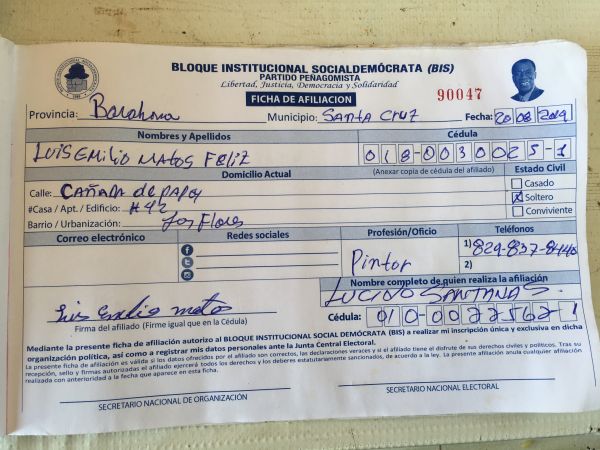 BLOQUE INSTITUCIONAL SOCIALDEMÓCRATA (BIS)
PARTIDO PEÑAGOMISTA
Libertad, Justicia, Democracia y Solidaridad
FICHA DE AFILIACION
90047
Provincia: Barahona Municipio: SANTA CRUZ Fecha: 20/08/2019
Nombres y Apellidos Cédula
LUIS EMILIO MATOS FELIZ 018-0030025-1
Domicilio Actual (Anexar copia de cédula del afiliado) Estado Civil
Calle: CAÑADA de PAPA Casado
#Casa / Apt. / Edificio: #42 X Soltero
Barrio / Urbanización: Los Flores Conviviente
Correo electrónico Redes sociales Profesión/Oficio Teléfonos
Pintor 1) 829-837-8440
2)
Nombre completo de quien realiza la afiliación
LUCIVO SANTANAS.
Luis Emilio matos
Firma del afiliado (Firme igual que en la Cédula) Cédula: 010-0022562-1
Mediante la presente ficha de afiliación autorizo al BLOQUE INSTITUCIONAL SOCIAL DEMÓCRATA (BIS) a realizar mi inscripción única y exclusiva en dicha
organización política, así como a registrar mis datos personales ante la Junta Central Electoral.
La presente ficha de afiliación es válida si los datos ofrecidos por el afiliado son correctos, las declaraciones veraces y si el afiliado tiene el disfrute de sus derechos civiles y políticos. Tras su
recepción, sello y firmas autorizadas el afiliado ejercerá todos los derechos y los deberes estatutariamente sancionados, de acuerdo a la ley. La presente afiliación anula cualquier afiliación
realizada con anterioridad a la fecha que aparece en esta ficha.
SECRETARIO NACIONAL DE ORGANIZACIÓN SECRETARIO NACIONAL ELECTORAL